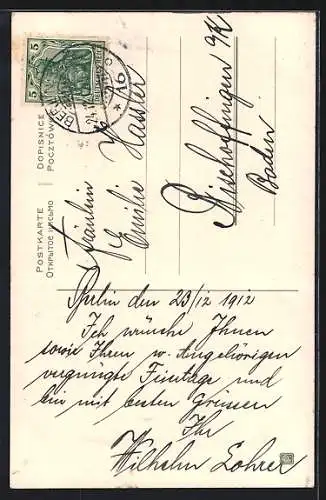 POSTKARTE
ОТКРЫТОЕ ПИСЬМО
DOPISNICE
POCZTÓWKA
5
5
BERLIN
24.12
* 16
Fräulein
Emilie Hassler
Bischoffingen a/K
Baden
Berlin den 23/12 1912
Ich wünsche Ihnen
sowie Ihren w. Angehörigen
vergnügte Feiertage und
bin mit besten Grüssen
Ihr
Wilhelm Lohrer